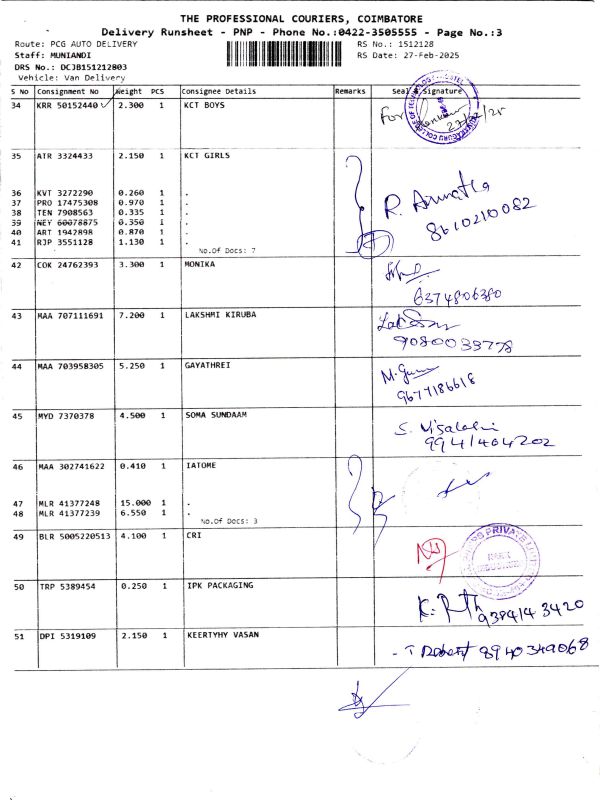 THE PROFESSIONAL COURIERS, COIMBATORE
Delivery Runsheet - PNP - Phone No.:0422-3505555 - Page No.:3
Route: PCG AUTO DELIVERY RS No.: 1512128
Staff: MUNIANDI RS Date: 27-Feb-2025
DRS No.: DCJB151212803
Vehicle: Van Delivery
S No Consignment No Weight PCS Consignee Details Remarks Seal & Signature
34 KRR 50152440 2.300 1 KCT BOYS
For
27/02/25
35 ATR 3324433 2.150 1 KCT GIRLS
36 KVT 3272290 0.260 1 .
37 PRO 17475308 0.970 1 .
38 TEN 7908563 0.335 1 .
39 NEY 60078875 0.350 1 .
40 ART 1942898 0.870 1 .
41 RJP 3551128 1.130 1 .
No.Of Docs: 7
8610210082
42 COK 24762393 3.300 1 MONIKA
6374806380
43 MAA 707111691 7.200 1 LAKSHMI KIRUBA
9080033778
44 MAA 703958305 5.250 1 GAYATHREI
9677186618
45 MYD 7370378 4.500 1 SOMA SUNDAAM
9941404202
46 MAA 302741622 0.410 1 IATOME
47 MLR 41377248 15.000 1 .
48 MLR 41377239 6.550 1 .
No.Of Docs: 3
49 BLR 5005220513 4.100 1 CRI
50 TRP 5389454 0.250 1 IPK PACKAGING
9384143420
51 DPI 5319109 2.150 1 KEERTYHY VASAN
8940349068